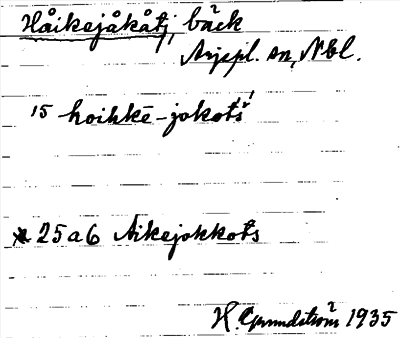 Håikejåkåtj, bäck
Arjepl. sn, Nbl.
15 hoihkē-jokots'
25a6 Aikejokkots
H. Grundström 1935